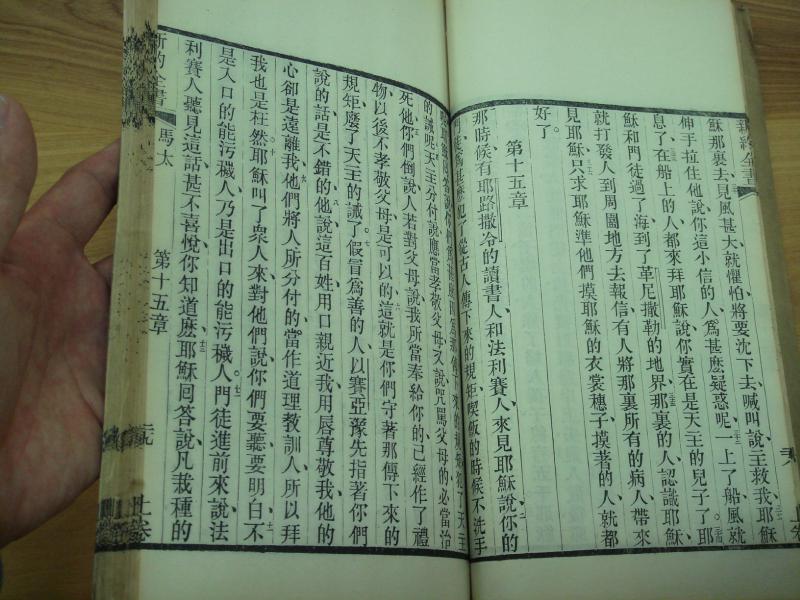 新約全書
上卷
穌那裏去見風甚大就懼怕將要沈下去喊叫說主救我耶穌
伸手拉住他說你這小信的人爲甚麽疑惑呢一上了船風就
息了在船上的人都來拜耶穌說你實在是天主的兒子了耶
穌和門徒過了海到了革尼撒勒的地界那裏的人認識耶穌
就打發人到周圍地方去報信有人將那裏所有的病人帶來
見耶穌只求耶穌準他們摸耶穌的衣裳穗子摸著的人就都
好了
第十五章
那時候有耶路撒冷的讀書人和法利賽人來見耶穌說你的
門徒爲甚麽犯了從古人傳下來的規矩喫飯的時候不洗手
的誡呢天主分付說應當孝敬父母又說咒罵父母的必當治
死他你們倒說人若對父母說我所當奉給你的已經作了禮
物以後不孝敬父母是可以的這就是你們守著那傳下來的
規矩廢了天主的誡了假冒爲善的人以賽亞豫先指著你們
說的話是不錯的他說這百姓用口親近我用唇尊敬我他的
心卻是遠離我他們將人所分付的當作道理教訓人所以拜
我也是枉然耶穌叫了衆人來對他們說你們要聽要明白不
是入口的能污穢人乃是出口的能污穢人門徒進前來說法
利賽人聽見這話甚不喜悅你知道麽耶穌回答說凡栽種的
新約全書
馬太
第十五章
上卷